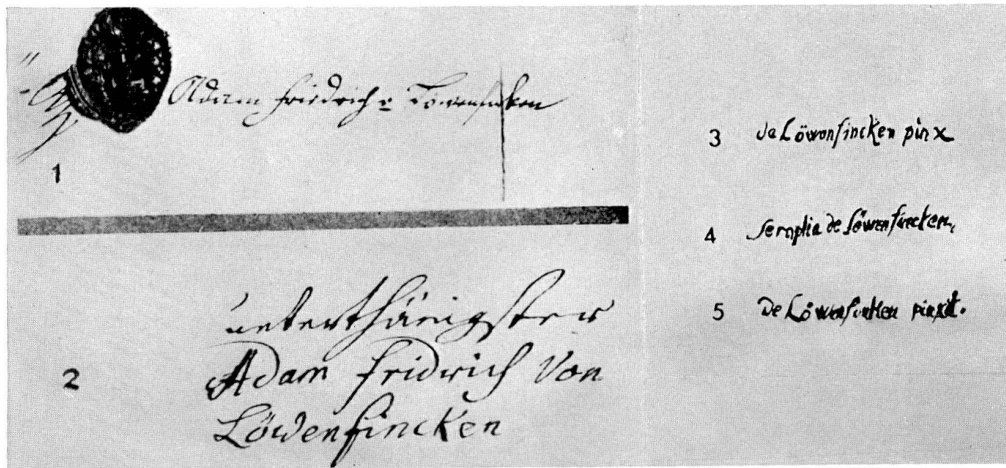 1
Adam Friedrich v Löwenfincken
2
unterthänigster
Adam Fridrich Von
Löwenfincken
3 de Löwenfincken pinx
4 Seraphia de Löwenfincken,
5 De Löwenfinken pinxit.